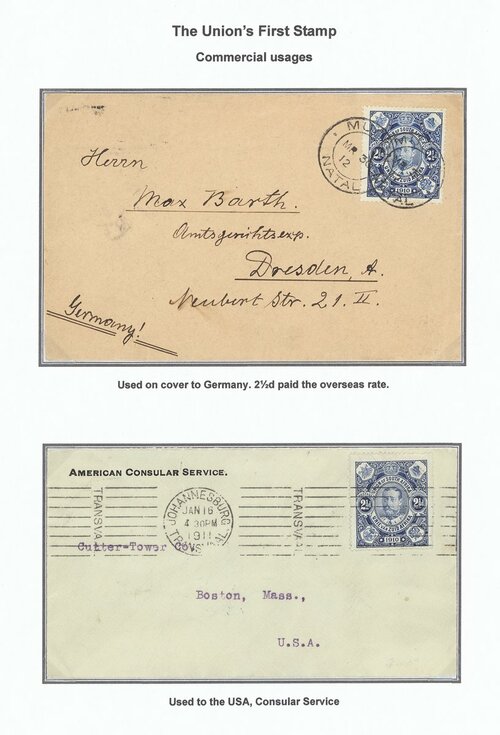 The Union's First Stamp
Commercial usages
UNION OF SOUTH AFRICA
2½
1910
MR 3
12
NATAL
Herrn
Max Barth.
Amtsgerichtsexp.
Dresden, A.
Neubert Str. 21. II.
Germany!
Used on cover to Germany. 2½d paid the overseas rate.
AMERICAN CONSULAR SERVICE.
UNION OF SOUTH AFRICA
2½
1910
JOHANNESBURG
JAN 16
4 30PM
1911
TRANSVAAL
TRANSVA
TRANSVA
Cutter-Tower Co.,
Boston, Mass.,
U.S.A.
Used to the USA, Consular Service